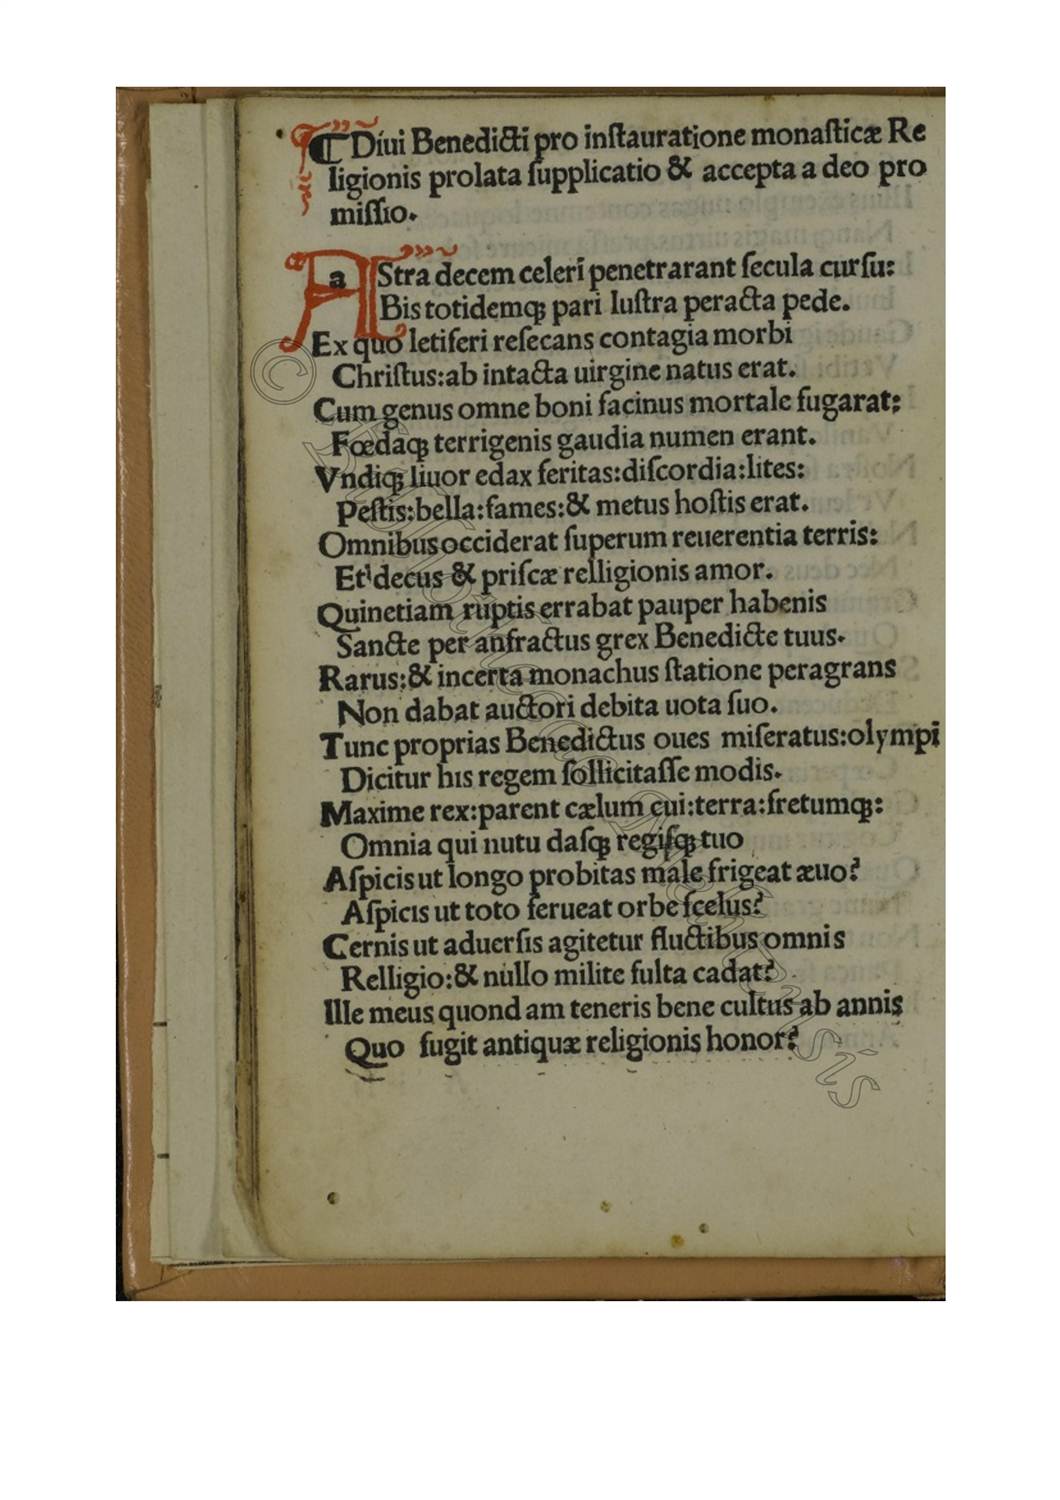 ⸿ Diui Benedicti pro inſtauratione monaſticæ Re
ligionis prolata ſupplicatio & accepta a deo pro
miſſio.
AStra decem celeri penetrarant ſecula curſu:
Bis totidemqꝫ pari luſtra peracta pede.
Ex quo letiferi reſecans contagia morbi
Chriſtus:ab intacta uirgine natus erat.
Cum genus omne boni facinus mortale fugarat:
Fœdaqꝫ terrigenis gaudia numen erant.
Vndiqꝫ liuor edax feritas:diſcordia:lites:
Peſtis:bella:fames:& metus hoſtis erat.
Omnibus occiderat ſuperum reuerentia terris:
Et decus & priſcæ relligionis amor.
Quinetiam ruptis errabat pauper habenis
Sancte per anfractus grex Benedicte tuus.
Rarus:& incerta monachus ſtatione peragrans
Non dabat auctori debita uota ſuo.
Tunc proprias Benedictus oues miſeratus:olympi
Dicitur his regem ſollicitaſſe modis.
Maxime rex:parent cælum cui:terra:fretumqꝫ:
Omnia qui nutu daſqꝫ regiſqꝫ tuo
Aſpicis ut longo probitas male frigeat æuo?
Aſpicis ut toto ferueat orbe ſcelus?
Cernis ut aduerſis agitetur fluctibus omnis
Relligio:& nullo milite fulta cadat?
Ille meus quond am teneris bene cultus ab annis
Quo fugit antiquæ religionis honor?